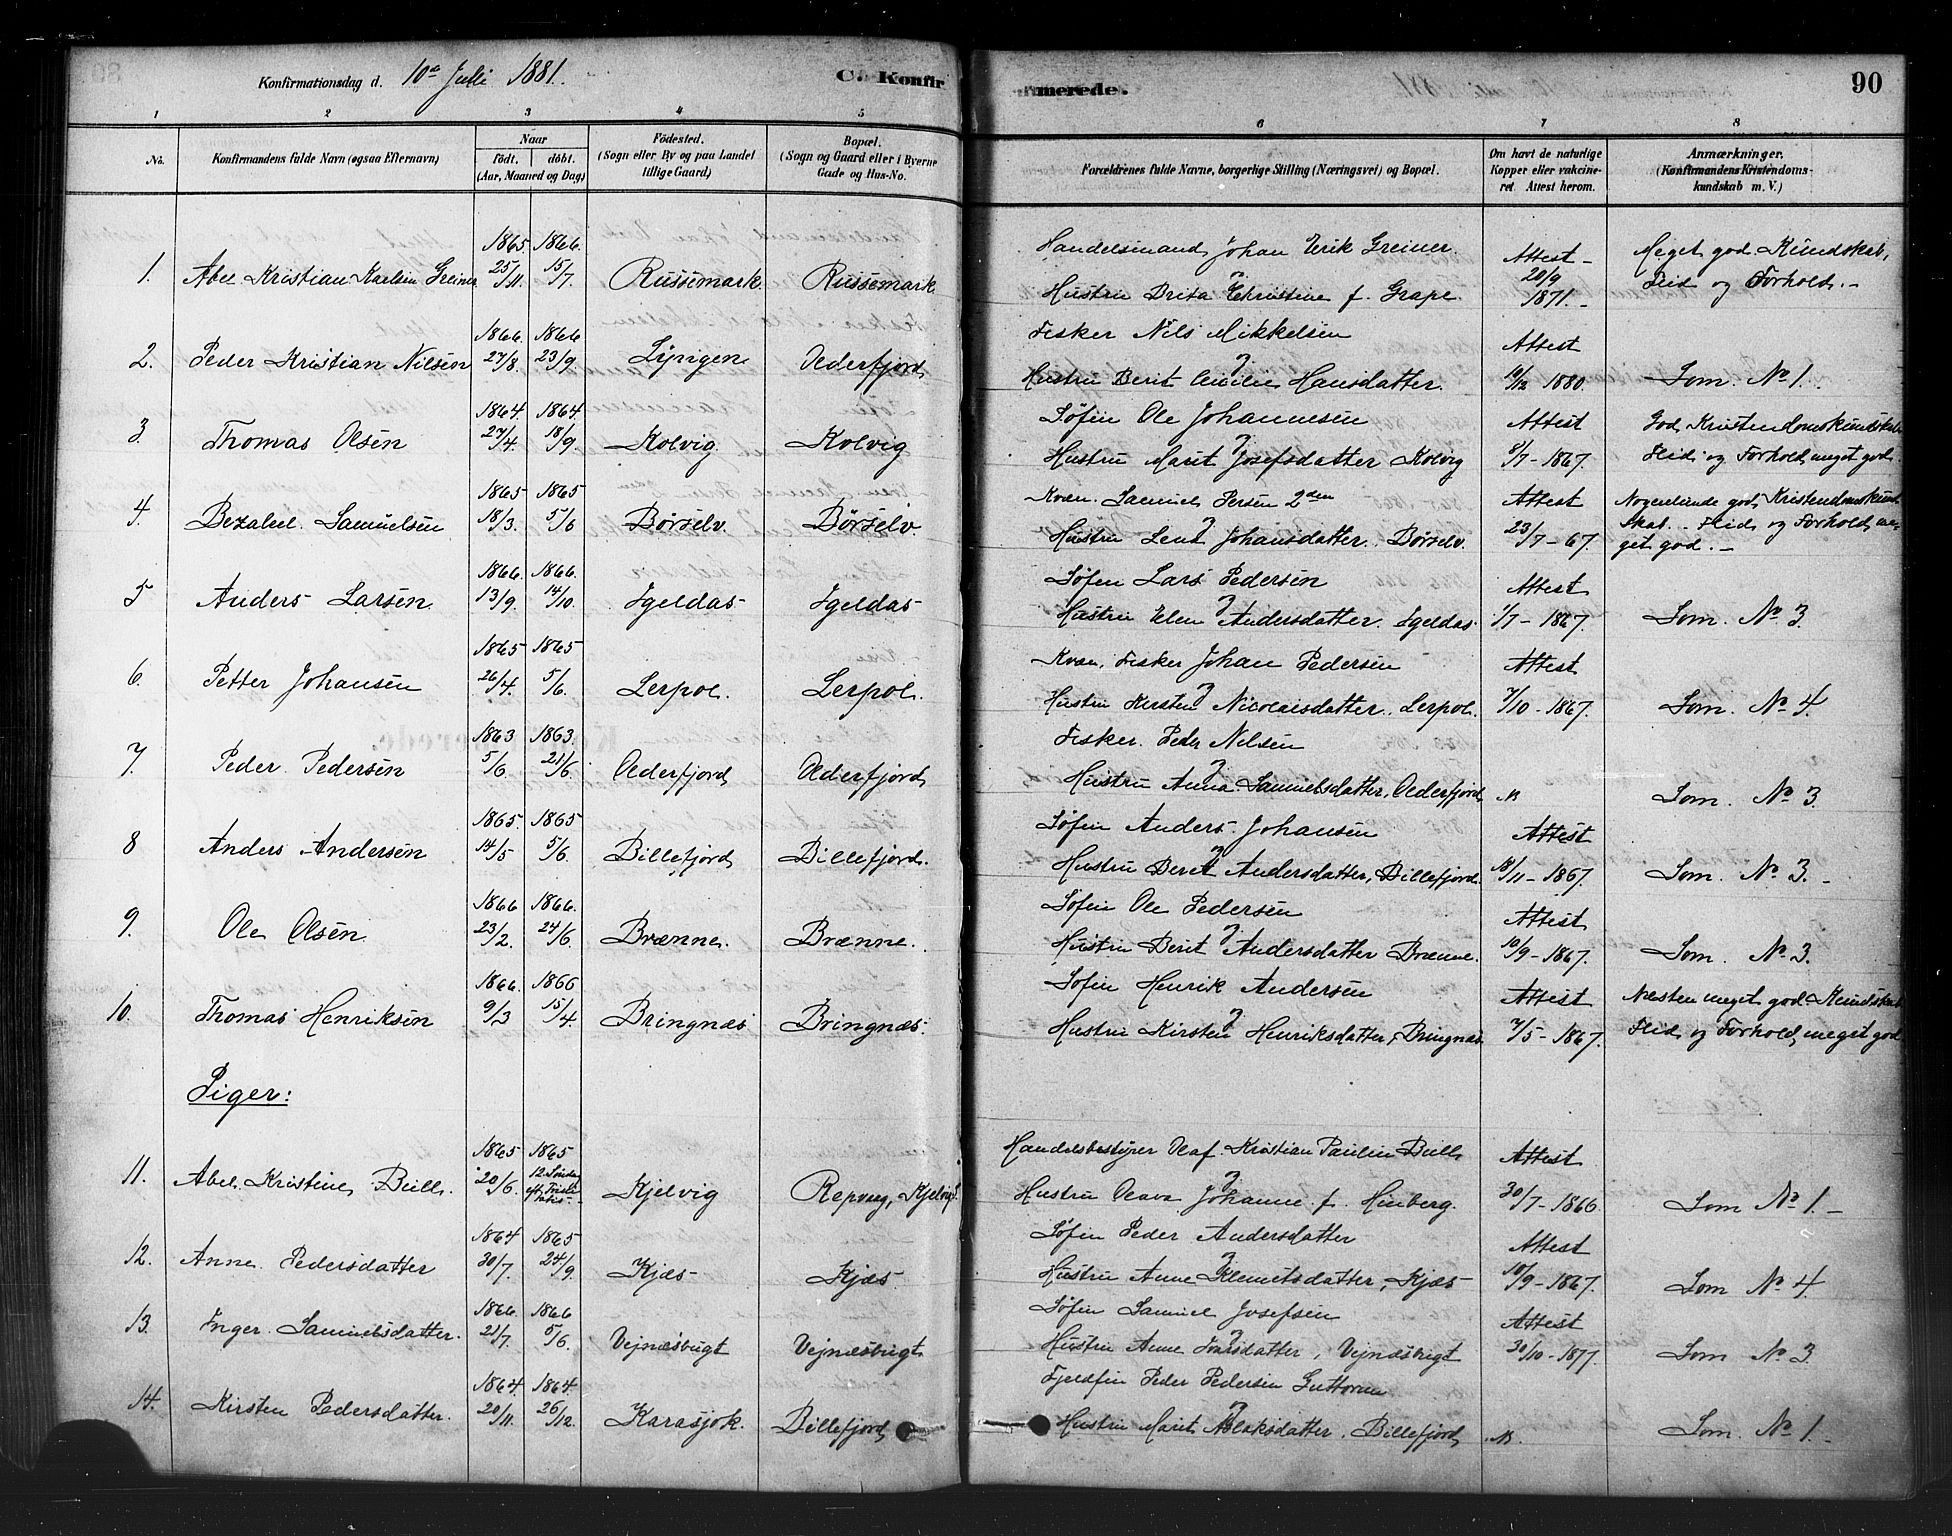 Konfirmationsdag d. 10de Juli 1881.
C. Konfirmerede.
90
1 2 3 4 5 6 7 8
No.
Konfirmandens fulde Navn (ogsaa Efternavn)
Naar
født. døbt.
(Aar, Maaned og Dag)
Fødested.
(Sogn eller By og paa Landet
tillige Gaard)
Bopæl.
(Sogn og Gaard eller i Byerne
Gade og Hus-No.
Forældrenes fulde Navne, borgerlige Stilling (Næringsvei) og Bopæl.
Om havt de naturlige
Kopper eller vakcine-
ret Attest herom.
Anmærkninger.
(Konfirmandens Kristendoms-
kundskab m. V.)
1865. 1866. Handelsmand Johan Erik Greiner Attest - Meget god Kundskab,
1. Abel Kristian Karlsen Greiner 25/11. 15/7. Russemark. Russemark. & 20/9 Flid og Forhold. -
Hustru Brita Christine f. Grape 1871. -
1866. 1866. Fisker Nils Mikkelsen Attest
2. Peder Kristian Nilsen 27/8. 23/9. Lyngen Olderfjord &
Hustru Berit Cecilie Hansdatter. 12/12 1880. Som. No 1.
1864. 1864. Søfin Ole Johannesen Attest God Kristendomskundskab
3. Thomas Olsen 27/4. 18/9. Kolvig. Kolvig &
Hustru Marit Josefsdatter Kolvig 8/7 - 1867. Flid og Forhold meget god.
1865 1865 Kvæn. Samuel Persen 2den Attest Nogenlunde god Kristendomskund-
4. Bezaleel Samuelsen 18/3. 5/6 Børselv. Børselv. & skab. - Flid og Forhold me-
Hustru Lena Johansdatter. Børselv. 23/7 - 67. get god. -
1866. 1866. Søfin Lars Pedersen Attest
5 Anders Larsen 13/9. 14/10. Igeldas Igeldas &
Hustru Elen Andersdatter. Igeldas 1/7 - 1867. Som. No 3.
1865 1865 Kvæn, Fisker Johan Pedersen Attest
6. Petter Johansen 26/4. 5/6. Lerpol. Lerpol. &
Hustru Kirsten Nicolaisdatter. Lerpol. 7/10 - 1867. Som. No 4.
1863 1863. Fisker. Peder Nilsen
7. Peder Pedersen 5/6. 21/6. Olderfjord Olderfjord &
Hustru Anna Samuelsdatter, Olderfjord Som. No 3.
1865. 1865 Søfin Anders Johansen Attest
8 Anders Andersen 14/5 5/6. Billefjord Billefjord. &
Hustru Berit Andersdatter, Billefjord. 18/11 - 1867. Som. No 3. -
1866 1866. Søfin Ole Pedersen Attest
9. Ole Olsen 23/2. 24/6. Brænne. Brænne. &
Hustru Berit Andersdatter Brænne. 10/9 - 1867. Som. No 3.
1866. 1866 Søfin Henrik Andersen Attest Næsten meget god Kundskab
10. Thomas Henriksen 9/3 15/4. Bringnæs Bringnæs &
Hustru Kirsten Henriksdatter, Bringnæs 7/5 - 1867. Flid og Forhold meget god
Piger:
1865 1865 Handelsbestyrer Olaf Kristian Paulin Bull Attest
11. Abel Kristine Bull. 20/6. 12. Søndag eft. Trinitatis Kjelvig Repvaag, Kjelvig. &
Hustru Olava Johanne f. Hinberg. 30/7 - 1866 Som No 1. -
1864 1865 Søfin Peder Andersdatter Attest
12. Anne Pedersdatter 30/7. 24/9. Kjæs Kjæs &
Hustru Anne Klemetsdatter, Kjæs 10/9 - 1867. Som No 4.
1866 1866 Søfin Samuel Josefsen Attest
13. Inger Samuelsdatter. 21/7. 5/6. Vejnæsbugt Vejnæsbugt &
Hustru Anne Ivarsdatter, Vejnæsbugt 30/10 - 1877 Som No 3.
1864. 1864. Fjeldfin Peder Pedersen Guttorm
14. Kirsten Pedersdatter. 20/11. 26/12. Karasjok. Billefjord &
Hustru Marit Aslaksdatter. Billefjord Som. No 1. -